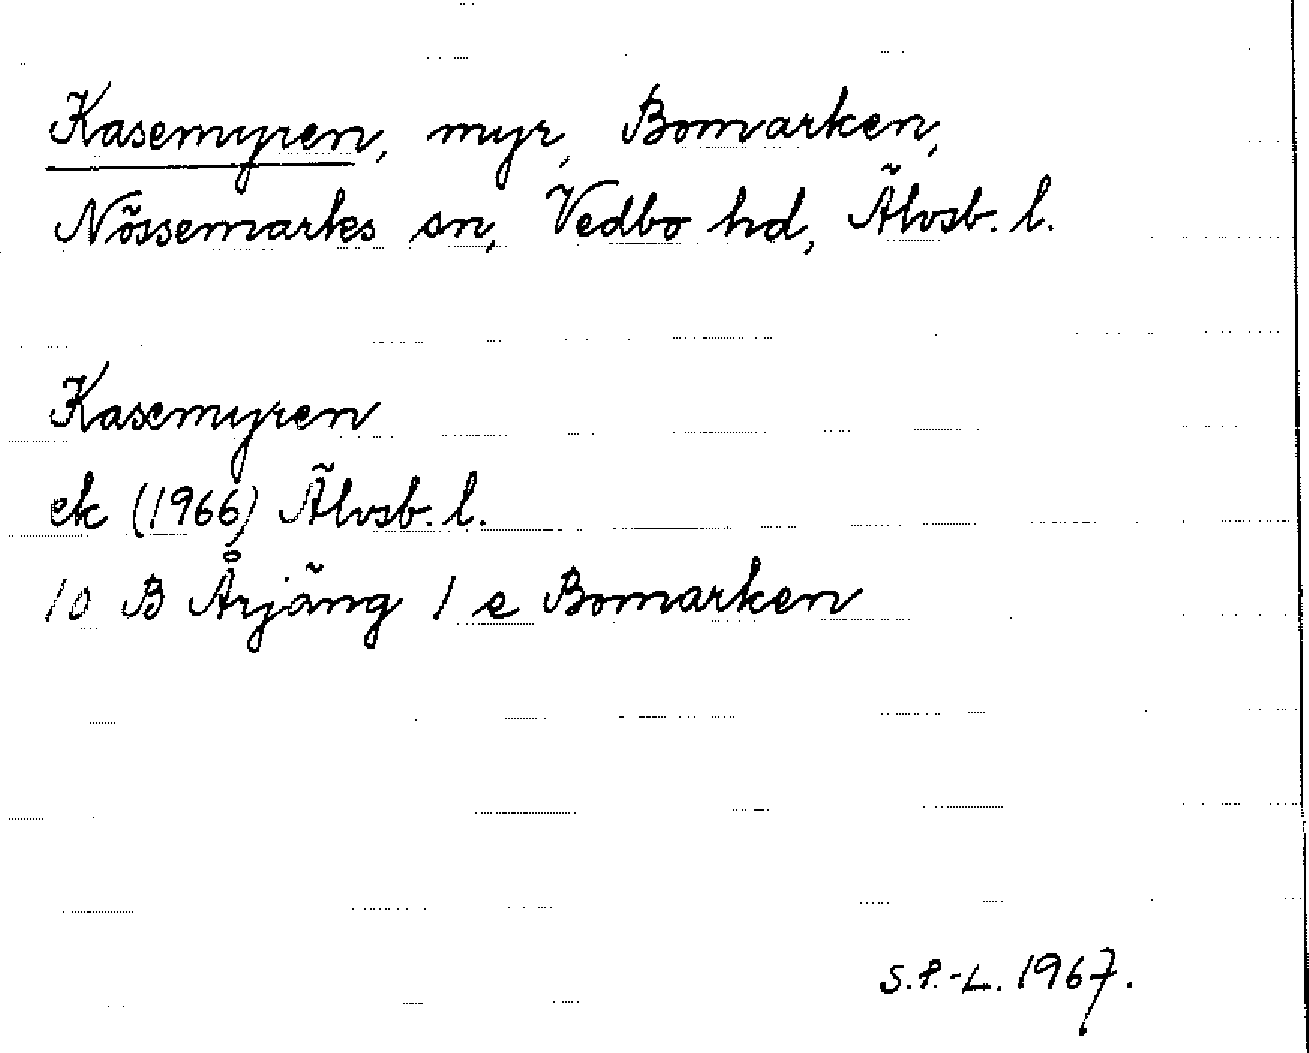 Kasemyren, myr, Bomarken,
Nössemarks sn, Vedbo hd, Älvsb. l.
Kasemyren
ek (1966) Älvsb. l.
10 B Årjäng 1 e Bomarken
S.P.-L. 1967.